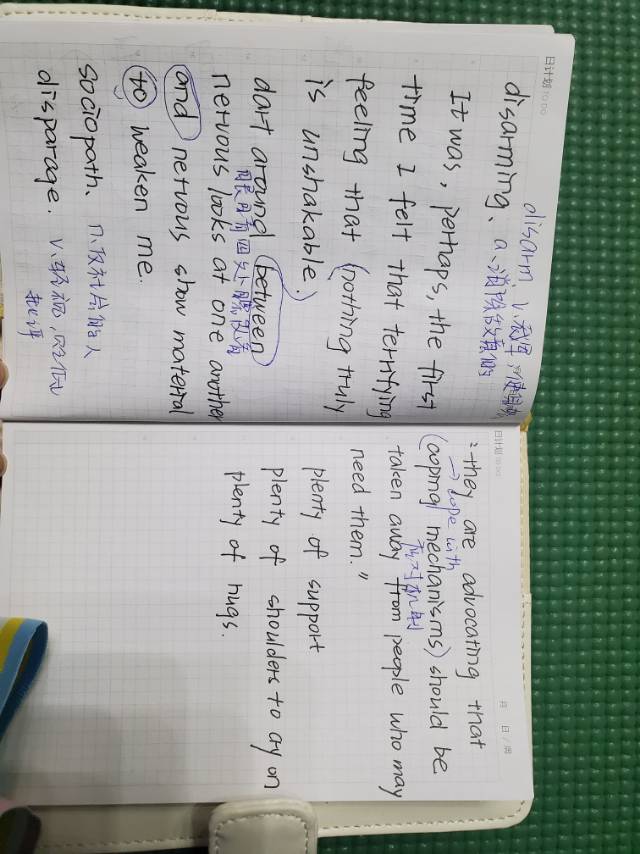 日计划 TO DO
disarm v.裁军,使缓和
disarming、a.消除敌意的
It was, perhaps, the first
time I felt that terrifying
feeling that (nothing truly
is unshakable.)
dart around between
四处
nervous looks at one another
and nervous show material
to weaken me.
sociopath、n.反社会的人
disparage. v.轻视,贬低
批评
日计划 TO DO
月 日/周
"they are advocating that
→cope with
(coping mechanisms) should be
应对机制
taken away from people who may
need them."
plenty of support
plenty of shoulders to cry on
plenty of hugs.